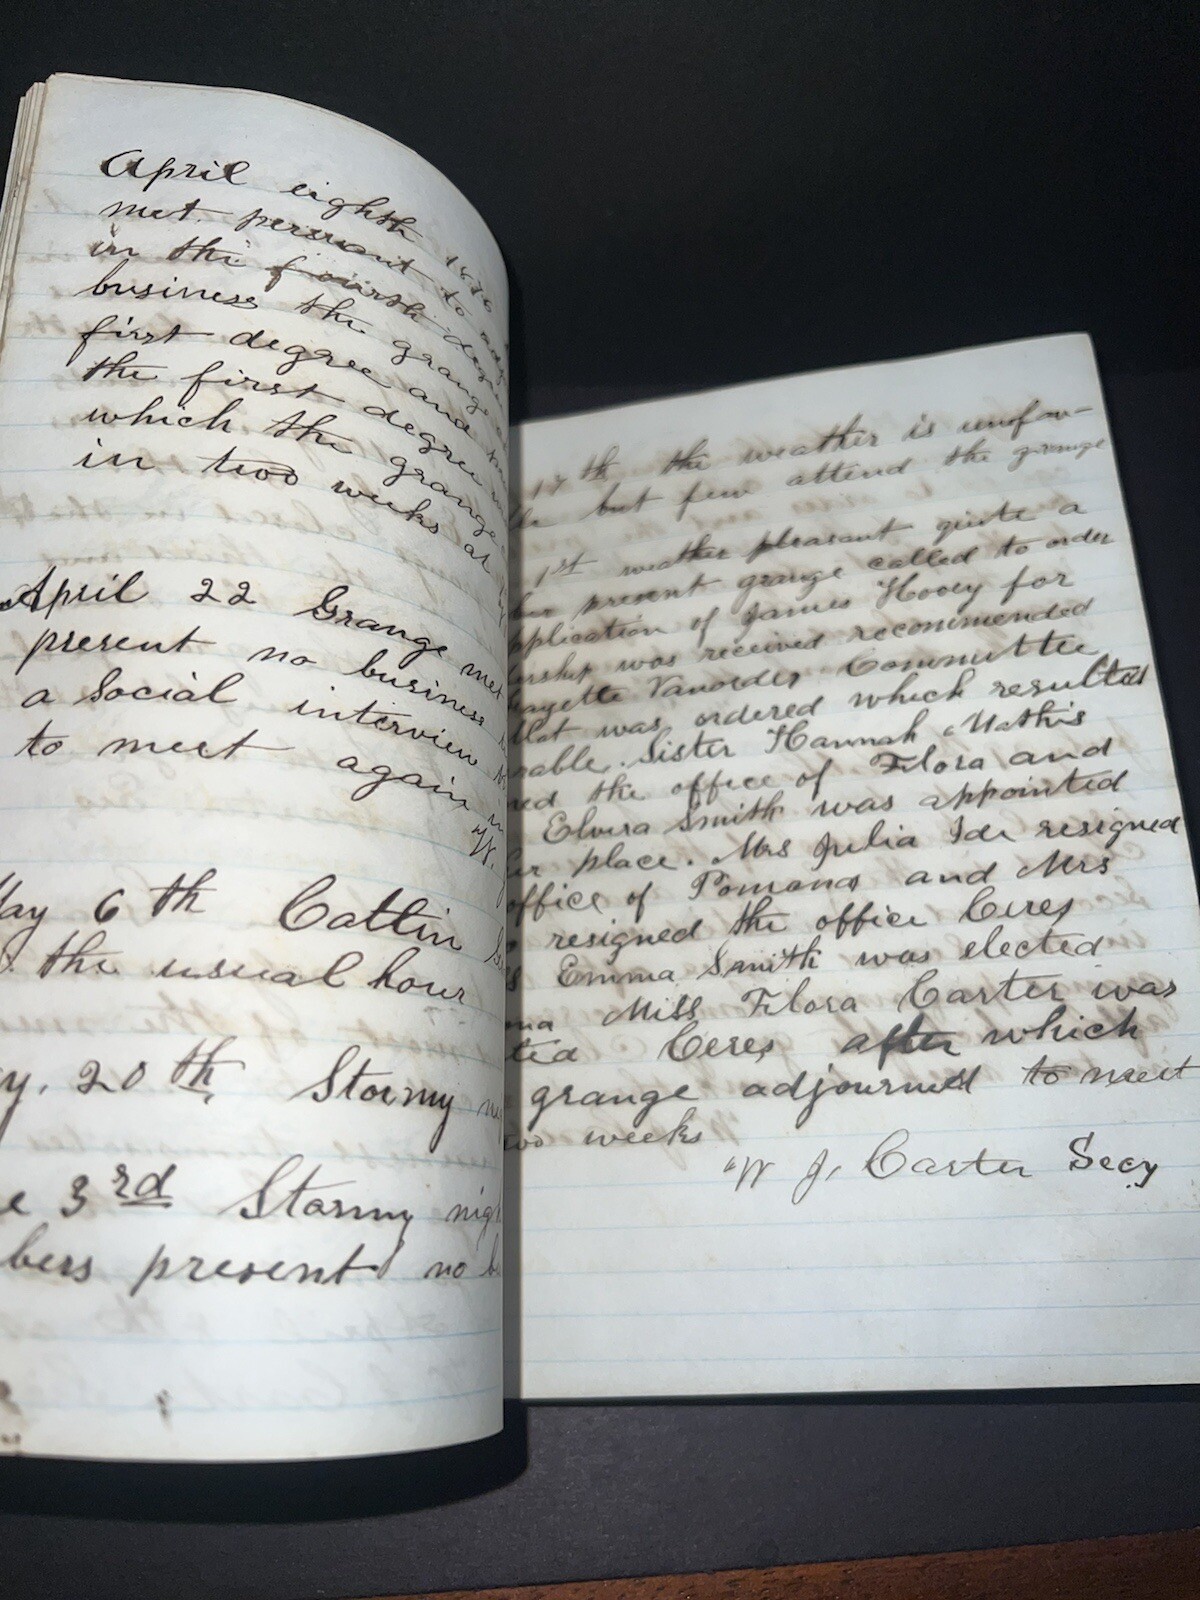 April eighth 1876
met persuant to
in the fourth
business the grange
first degree and
the first degree
which the grange
in two weeks at
April 22 Grange met
present no business
a Social interview
to meet again in
W.
6th Cattlin
the usual hour
20th, Stormy
3rd Stormy
bers present no
17th the weather is unfav-
but few attend the grange
1st weather pleasant quite a
present grange called to order
pplication of James Hooey for
was received recommended
Vanorder Committee
was ordered which resulted
rable. Sister Hannah Mathis
the office of Flora and
Elvira Smith was appointed
place. Mrs Julia Ide resigned
office of Pomona and Mrs
resigned the office Ceres
Emma Smith was elected
Miss Flora Carter was
ted Ceres after which
grange adjourned to meet
two weeks
W J. Carter Secy